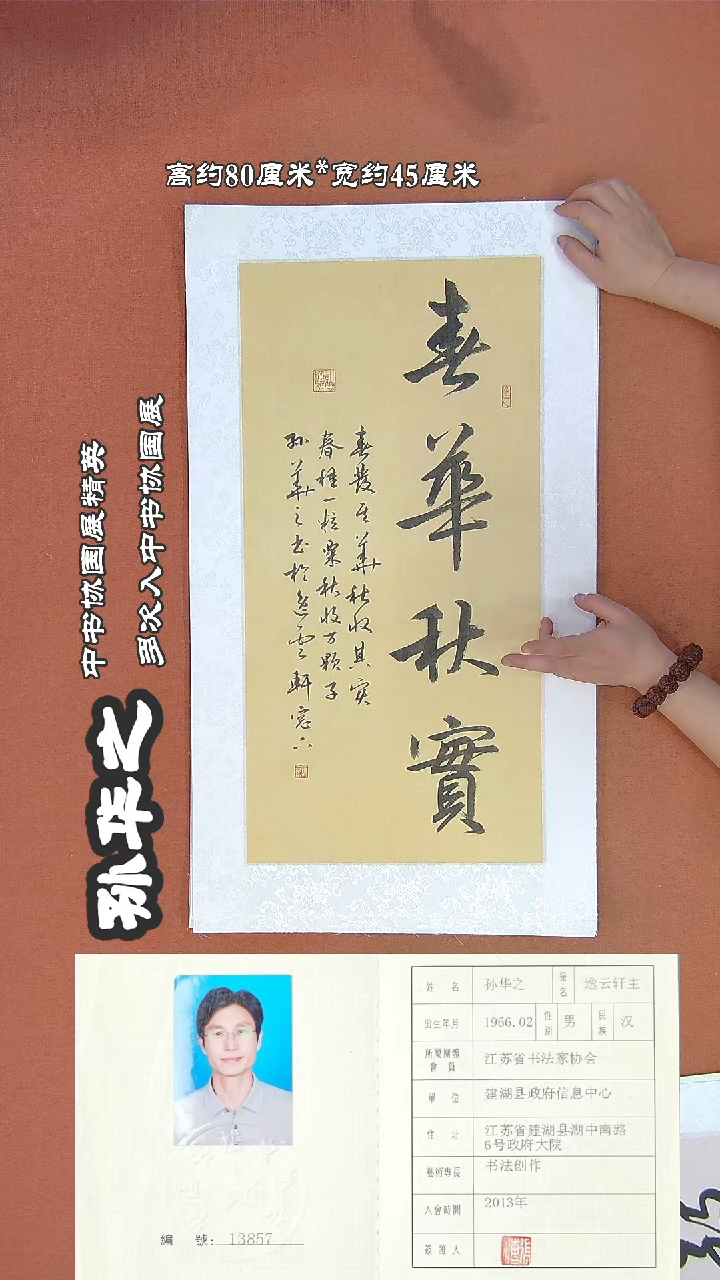 高约80厘米*宽约45厘米
中书协国展精英
多次入中书协国展
孙华之
春華秋實
春發其華秋收其实
春種一粒粟秋收万颗子
孙華之书於逸雲軒窓下
姓 名 孙华之 筆名 逸云轩主
出生年月 1966.02 性別 男 民族 汉
所屬團體會員 江苏省书法家协会
單 位 建湖县政府信息中心
住 址 江苏省建湖县湖中南路6号政府大院
藝術專長 书法创作
入會時間 2013年
簽發人
編 號: 13857